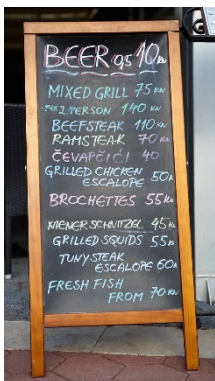 BEER 0,5 10 KN
MIXED GRILL 75 KN
FOR 2 PERSON 140 KN
BEEFSTEAK 110 KN
RAMSTEAK 70 KN
ČEVAPČIĆI 40
GRILLED CHICKEN
ESCALOPE 50 K
BROCHETTES 55 KN
WIENERSCHNITZEL 45 K
GRILLED SQUIDS 55 K
TUNYSTEAK
ESCALOPE 60 K
FRESH FISH
FROM 70 KN